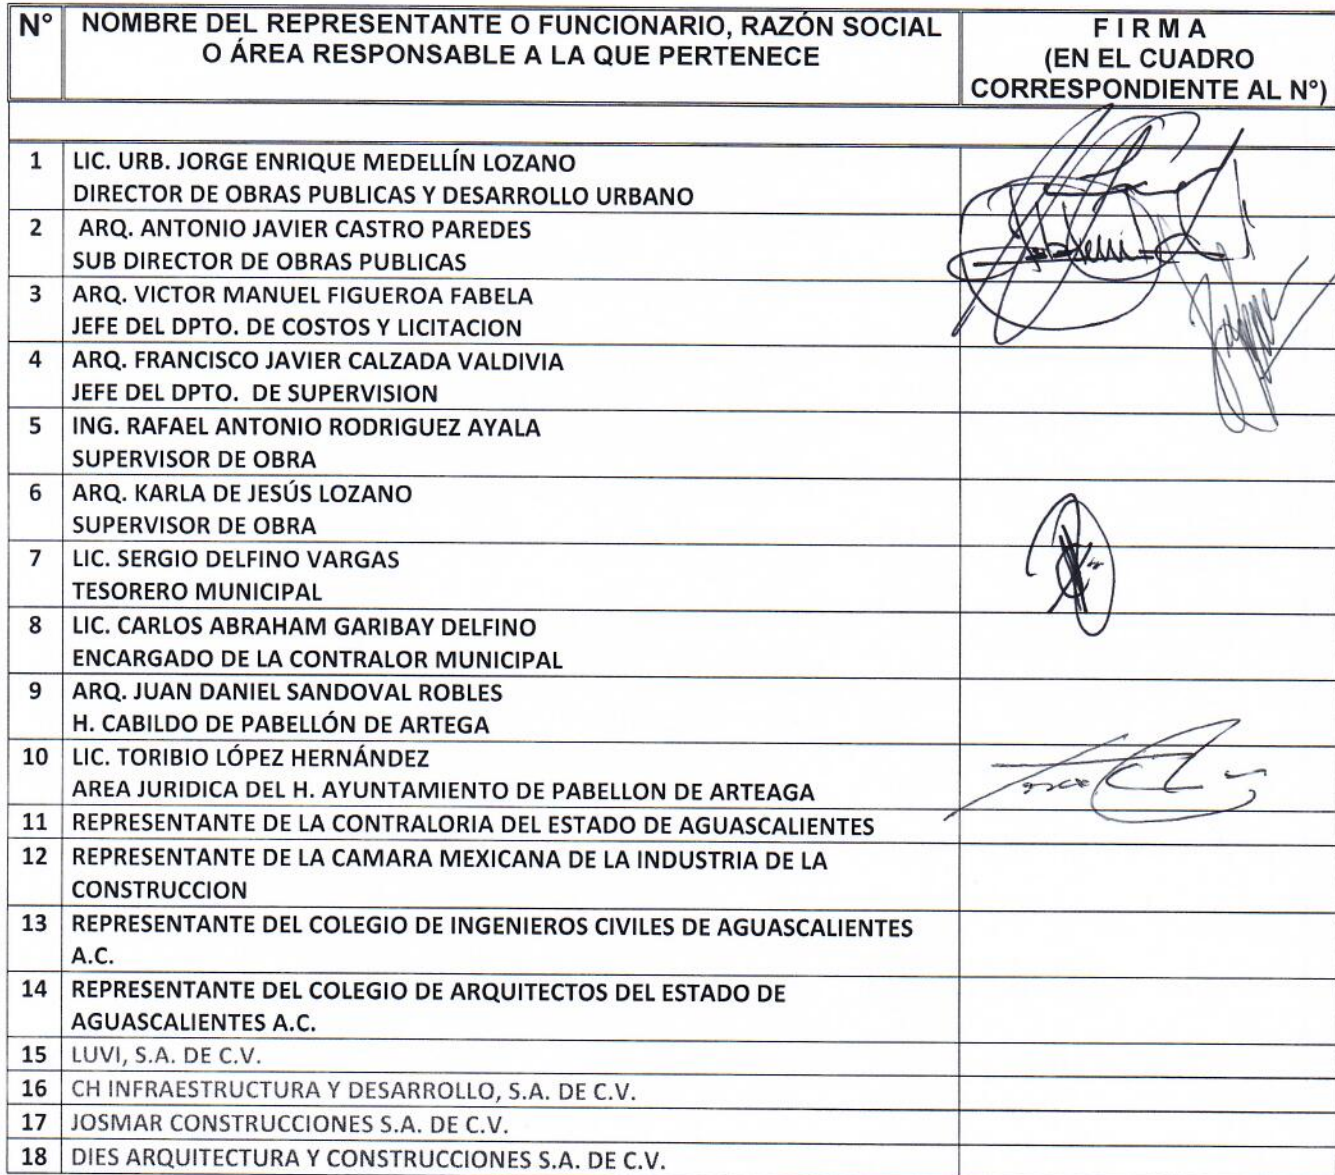 N° NOMBRE DEL REPRESENTANTE O FUNCIONARIO, RAZÓN SOCIAL
O ÁREA RESPONSABLE A LA QUE PERTENECE
F I R M A
(EN EL CUADRO
CORRESPONDIENTE AL N°)
1 LIC. URB. JORGE ENRIQUE MEDELLÍN LOZANO
DIRECTOR DE OBRAS PUBLICAS Y DESARROLLO URBANO
2 ARQ. ANTONIO JAVIER CASTRO PAREDES
SUB DIRECTOR DE OBRAS PUBLICAS
3 ARQ. VICTOR MANUEL FIGUEROA FABELA
JEFE DEL DPTO. DE COSTOS Y LICITACION
4 ARQ. FRANCISCO JAVIER CALZADA VALDIVIA
JEFE DEL DPTO. DE SUPERVISION
5 ING. RAFAEL ANTONIO RODRIGUEZ AYALA
SUPERVISOR DE OBRA
6 ARQ. KARLA DE JESÚS LOZANO
SUPERVISOR DE OBRA
7 LIC. SERGIO DELFINO VARGAS
TESORERO MUNICIPAL
8 LIC. CARLOS ABRAHAM GARIBAY DELFINO
ENCARGADO DE LA CONTRALOR MUNICIPAL
9 ARQ. JUAN DANIEL SANDOVAL ROBLES
H. CABILDO DE PABELLÓN DE ARTEGA
10 LIC. TORIBIO LÓPEZ HERNÁNDEZ
AREA JURIDICA DEL H. AYUNTAMIENTO DE PABELLON DE ARTEAGA
11 REPRESENTANTE DE LA CONTRALORIA DEL ESTADO DE AGUASCALIENTES
12 REPRESENTANTE DE LA CAMARA MEXICANA DE LA INDUSTRIA DE LA
CONSTRUCCION
13 REPRESENTANTE DEL COLEGIO DE INGENIEROS CIVILES DE AGUASCALIENTES
A.C.
14 REPRESENTANTE DEL COLEGIO DE ARQUITECTOS DEL ESTADO DE
AGUASCALIENTES A.C.
15 LUVI, S.A. DE C.V.
16 CH INFRAESTRUCTURA Y DESARROLLO, S.A. DE C.V.
17 JOSMAR CONSTRUCCIONES S.A. DE C.V.
18 DIES ARQUITECTURA Y CONSTRUCCIONES S.A. DE C.V.